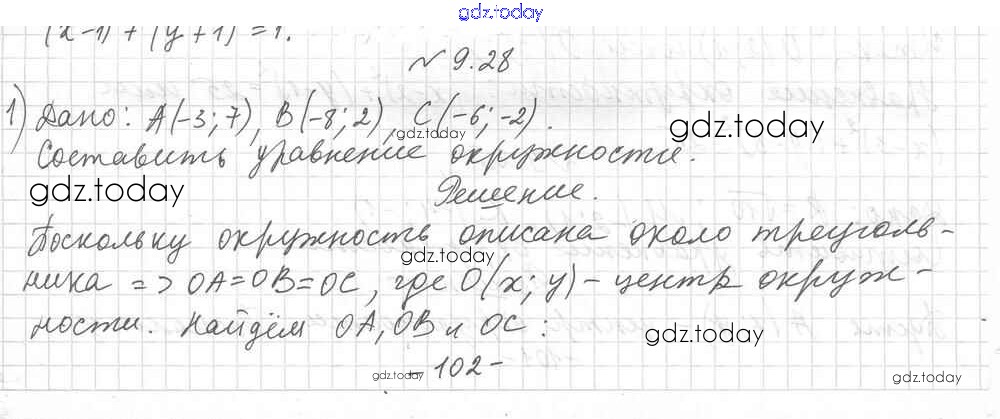 gdz.today
(x-1) + (y+1) = 1.
№ 9.28
1) Дано: A(-3; 7), B(-8; 2), C(-6; -2).
gdz.today
gdz.today
Составить уравнение окружности.
gdz.today
Решение.
Поскольку окружность описана около треуголь-
gdz.today
ника => OA=OB=OC, где O(x; y) - центр окруж-
ности. Найдём OA, OB и OC:
gdz.today
- 102 -
gdz.today
gdz.today